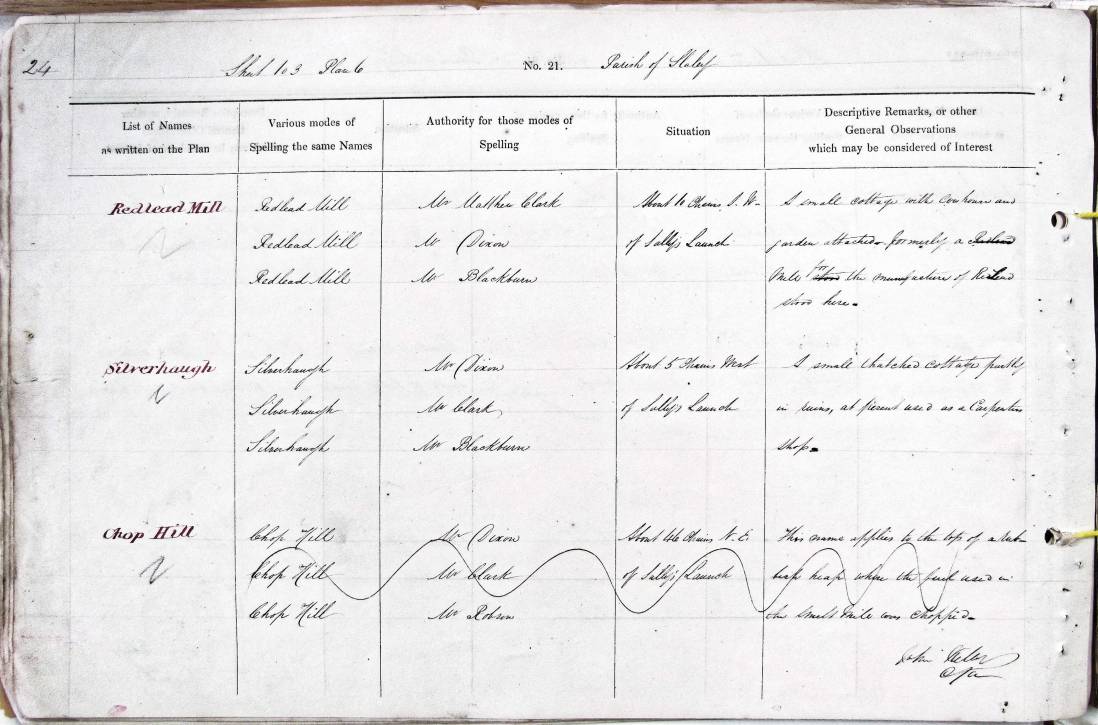 24
Sheet 103 Plan 6 No. 21. Parish of Slaley
List of Names
as written on the Plan
Various modes of
Spelling the same Names
Authority for those modes of
Spelling
Situation
Descriptive Remarks, or other
General Observations
which may be considered of Interest
Redlead Mill Redlead Mill Mr Matthew Clark About 10 Chains S. W- A small cottage with Cowhouse and
Redlead Mill Mr Dixon of Sallys Launch garden attached- formerly a
Redlead Mill Mr Blackburn Mill for stood the manufacture of Redlead
stood here-
Silverhaugh Silverhaugh Mr Dixon About 5 Chains West A small thatched cottage partly
Silverhaugh Mr Clark of Sallys Launch in ruins, at present used as a Carpenters
Silverhaugh Mr Blackburn shop-
Chop Hill Chop Hill Mr Dixon About 46 Chains N. E. This name applies to the top of a rub-
Chop Hill Mr Clark of Sallys Launch heap where the fuel used in
Chop Hill Mr Robson the Smelt Mill was chopped-
John